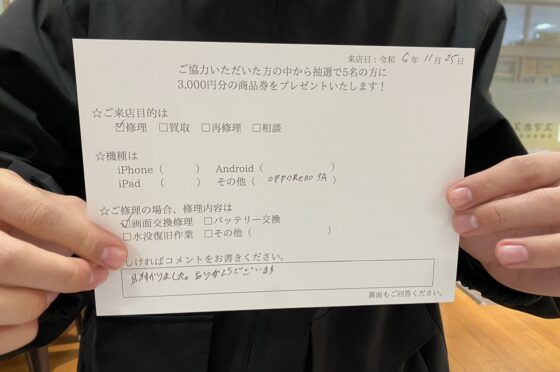 来店日：令和 6 年 11 月 25 日
ご協力いただいた方の中から抽選で5名の方に
3,000円分の商品券をプレゼントいたします！
☆ご来店目的は
☑修理 □買取 □再修理 □相談
☆機種は
iPhone（ ） Android（ ）
iPad （ ） その他（ OPPOReno3A）
☆ご修理の場合、修理内容は
☑画面交換修理 □バッテリー交換
□水没復旧作業 □その他（ ）
しければコメントをお書きください。
助かりました。ありがとうございます
裏面もご回答ください。